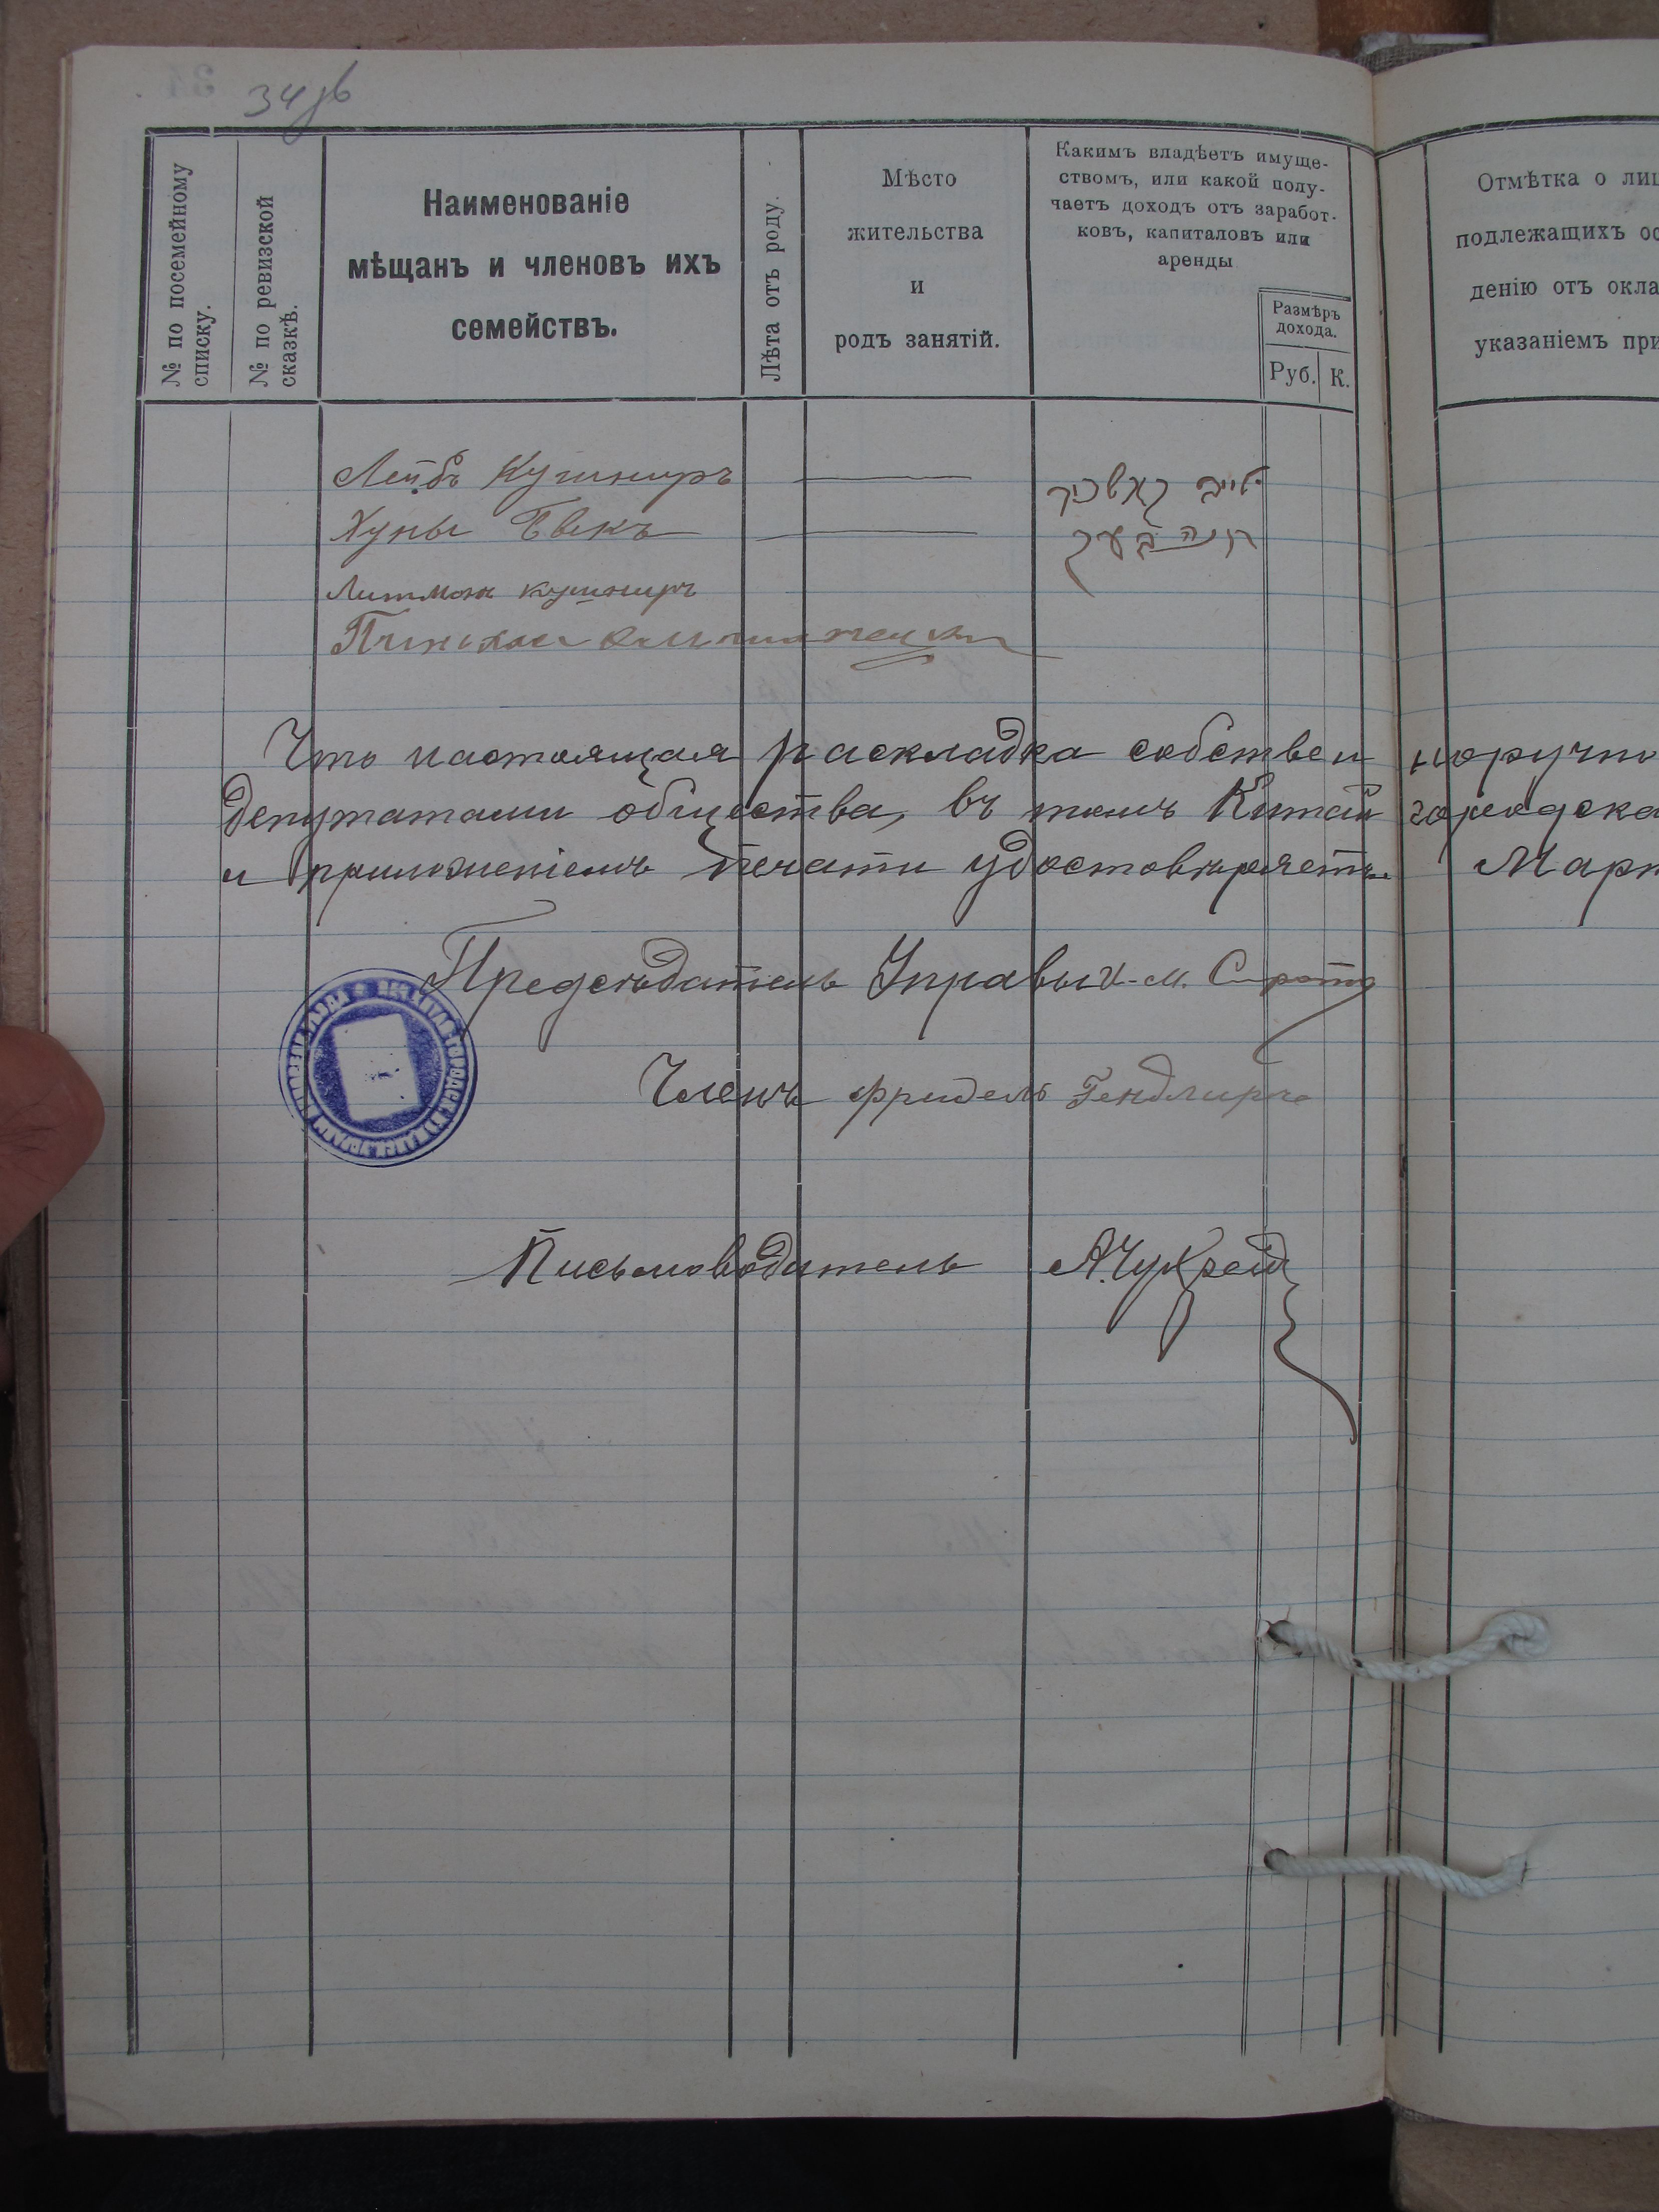 34 зв
№ по посемейному
списку.
№ по ревизской
сказкѣ.
Наименованіе
мѣщанъ и членовъ ихъ
семействъ.
Лѣта отъ роду.
Мѣсто
жительства
и
родъ занятій.
Какимъ владѣетъ имуще-
ствомъ, или какой полу-
чаетъ доходъ отъ заработ-
ковъ, капиталовъ или
аренды
Размѣръ
дохода.
Руб. К.
Отмѣтка о лиц
подлежащихъ ос
денію отъ окла
указаніемъ при
Лейбъ Кушниръ
Хуны Бекъ
Литманъ Кушниръ
Пинхас
Что настоящая раскладка собственноручно
депутатами общества, въ томъ Китайгородска
и приложеніемъ печати удостовѣряетъ. Март
Предсѣдатель Управы Х-М. Сирота
Членъ Фридель Гендлиръ
Письмоводитель А. Чу